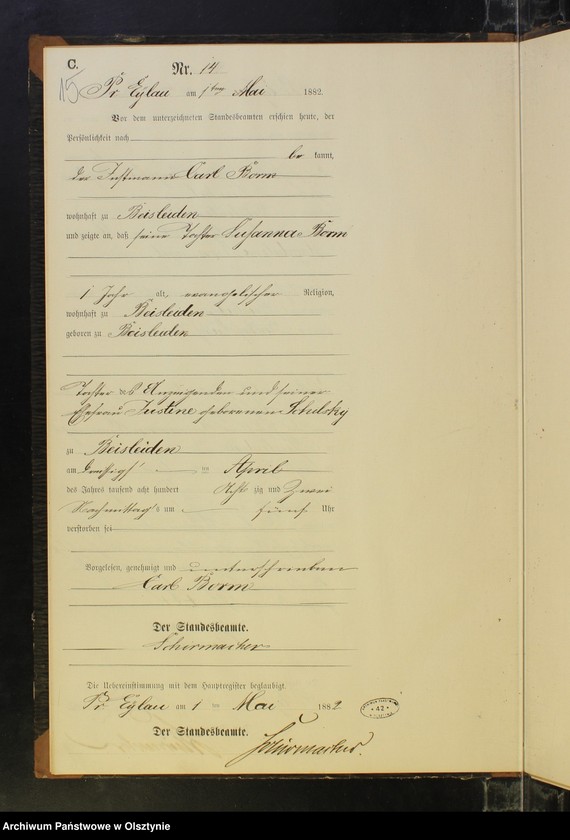 C.
Nr. 14
15
Pr. Eylau am 1ten Mai 1882.
Vor dem unterzeichneten Standesbeamten erschien heute, der
Persönlichkeit nach
be kannt,
der Instmann Carl Borm
wohnhaft zu Beisleiden
und zeigte an, daß seine Tochter Susanna Borm
1 Jahr alt, evangelischer Religion,
wohnhaft zu Beisleiden
geboren zu Beisleiden
Tochter des Anzeigenden und seiner
Ehefrau Justine geborenen Schulsky
zu Beisleiden
am dreißigsten April
des Jahres tausend acht hundert Achtzig und Zwei
Nachmittags um fünf Uhr
verstorben sei
Vorgelesen, genehmigt und unterschrieben
Carl Borm
Der Standesbeamte.
Schormacher
Die Uebereinstimmung mit dem Hauptregister beglaubigt.
Pr. Eylau am 1 ten Mai 1882
Der Standesbeamte.
42
Archiwum Państwowe w Olsztynie